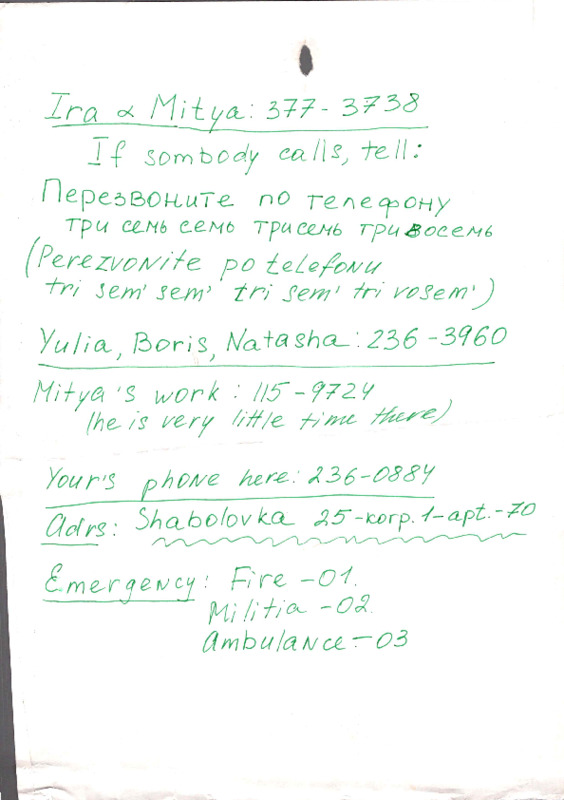 Ira & Mitya: 377-3738
If sombody calls, tell:
Перезвоните по телефону
три семь семь три семь три восемь
(Perezvonite po telefonu
tri sem' sem' tri sem' tri vosem')
Yulia, Boris, Natasha: 236-3960
Mitya's work: 115-9724
(he is very little time there)
Your's phone here: 236-0884
Adrs: Shabolovka 25-korp.1-apt.-70
Emergency: Fire -01.
Militia -02.
Ambulance-03